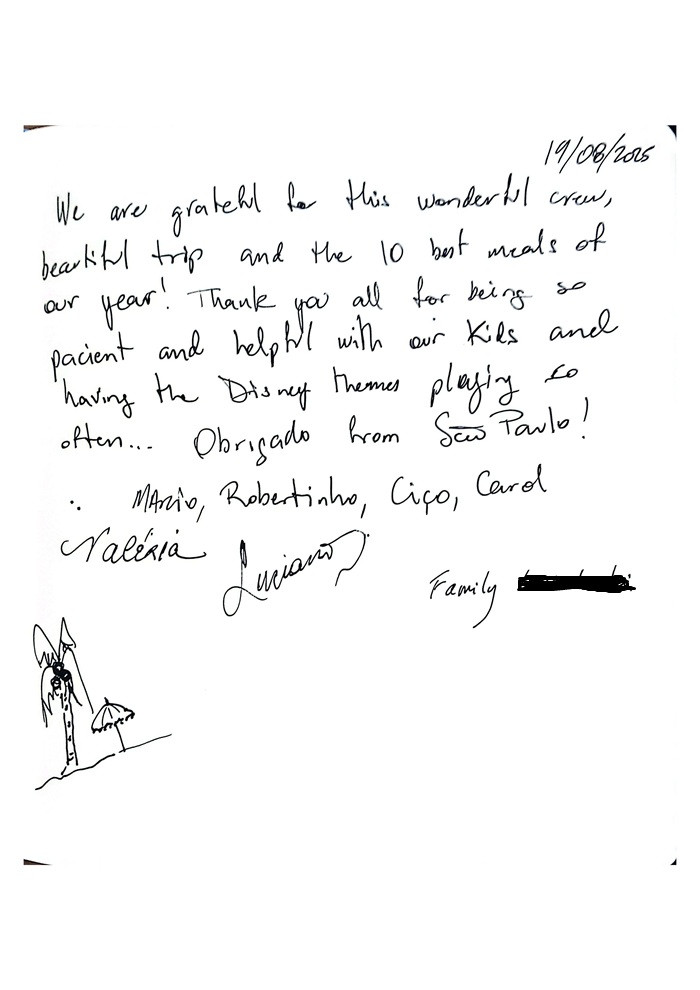 19/08/2025
We are grateful for this wonderful crew,
beautiful trip and the 10 best meals of
our year! Thank you all for being so
pacient and helpful with our kids and
having the Disney themes playing so
often... Obrigado from São Paulo!
∴ MARIO, Robertinho, Ciço, Carol
Valéria
Luciano
Family